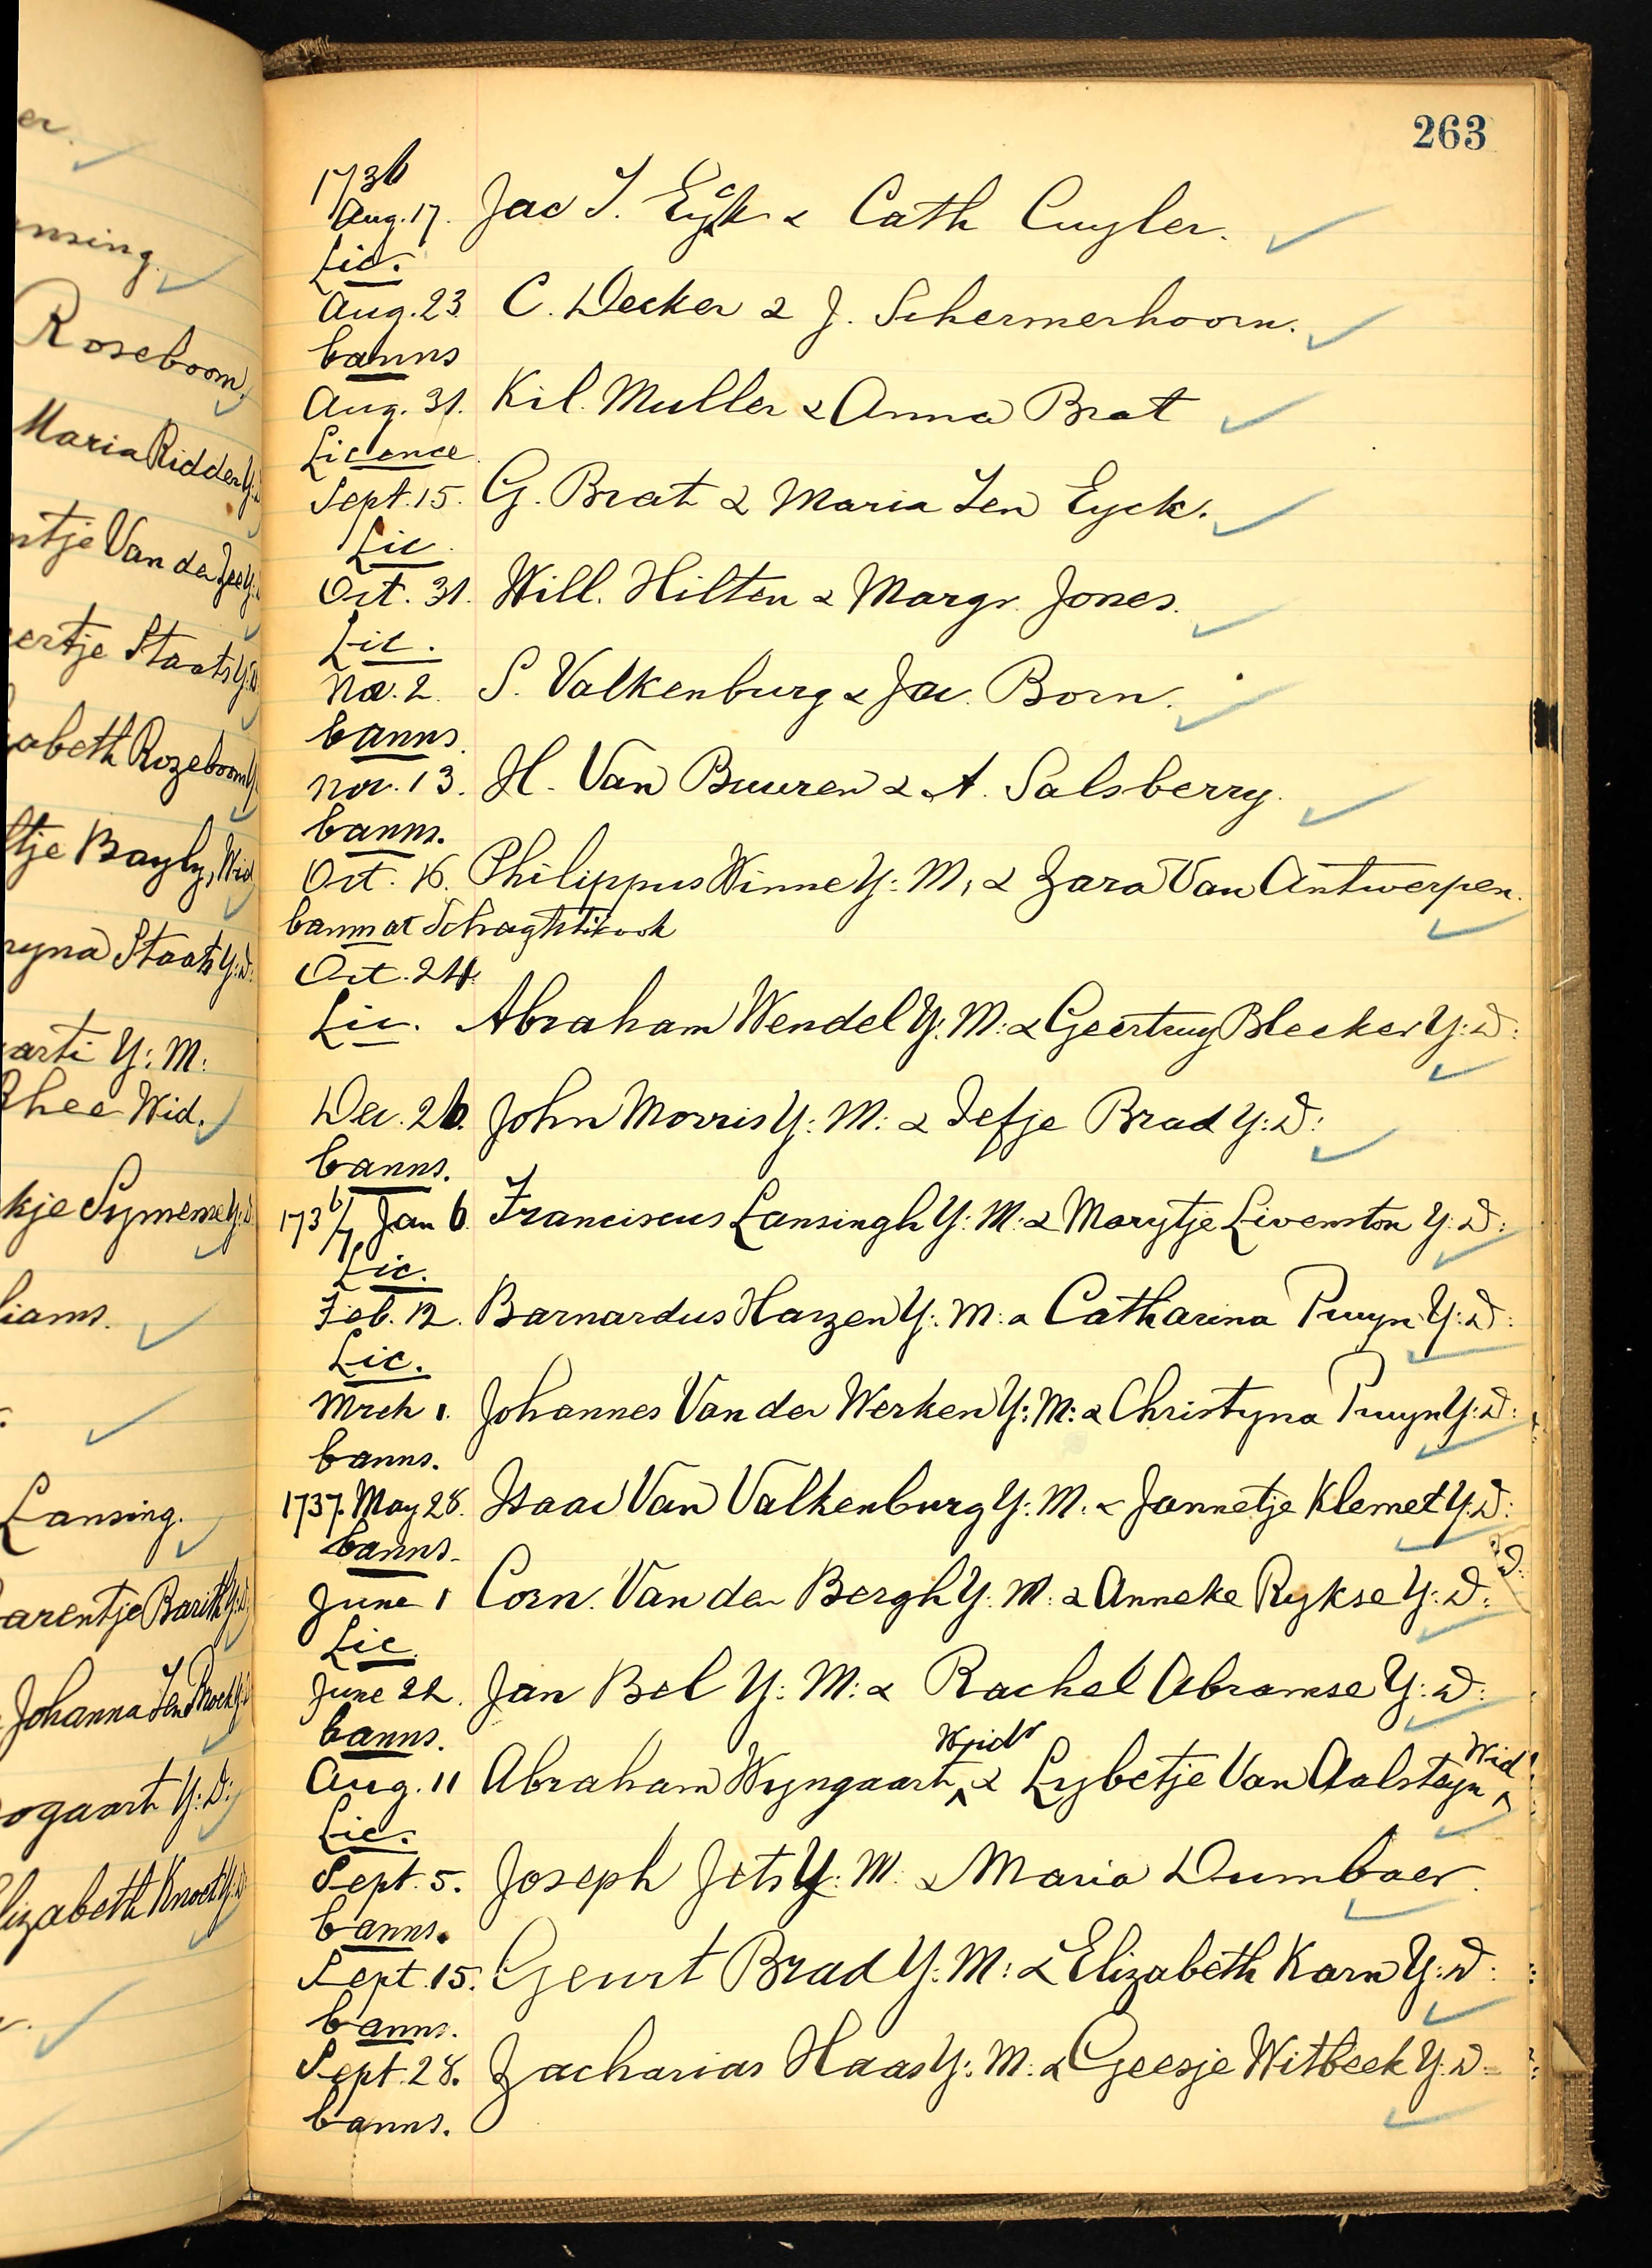 er.
ansing.
Roseboom,
Maria Ridder Y:
ntje Van der Zee Y:
ertje Staats Y:D
abeth Rozeboom Y
ltje Bayly, Wid
ryna Staats Y:D:
arti Y: M:
Rhee Wid.
kje Symense Y:D
liams.
Lansing.
arentje Barith Y:D
Johanna Ten Broek Y:D
ogaart Y:D:
lizabeth Knoet Y:D
263
1736
Aug. 17. Jac T. Eyck & Cath Cuyler.
Lic.
Aug. 23. C. Decker & J. Schermerhoorn.
banns
Aug. 31. Kil. Muller & Anna Brat
Licence
Sept. 15. G. Brat & Maria Ten Eyck.
Lic.
Oct. 31. Will. Hilten & Margr. Jones.
Lic.
Nov. 2. S. Valkenburg & Jac. Born.
banns.
Nov. 13. H. Van Buuren & A. Salsberry.
banns.
Oct. 16. Philippus Winne Y: M, & Zara Van Antwerpen.
banns at Schaghtikook
Oct. 24.
Lic. Abraham Wendel Y: M: & Geertruy Bleeker Y: D:
Dec. 26. John Morris Y: M: & Tefje Brad Y: D:
banns.
1736/7 Jan 6. Franciscus Lansingh Y: M: & Marytje Livenston Y: D:
Lic.
Feb. 12. Barnardus Harzen Y: M: & Catharina Pruyn Y: D:
Lic.
Mrch 1. Johannes Van der Werken Y: M: & Christyna Pruyn Y: D:
banns.
1737. May 28. Isaac Van Valkenburg Y: M. & Jannetje Klemet Y: D:
banns.
June 1 Corn. Van den Bergh Y: M: & Anneke Rykse Y: D:
Lic.
June 22. Jan Bel Y: M: & Rachel Abramse Y: D:
banns.
Aug. 11 Abraham Wyngaart, Widr & Lybetje Van Aalsteyn Wid
Lic.
Sept. 5. Joseph Jets Y: M. & Maria Dumbaer.
banns.
Sept. 15. Geurt Brad Y: M: & Elizabeth Karn Y: D:
banns.
Sept. 28. Zacharias Haas Y: M: & Geesje Witbeek Y: D:
banns.